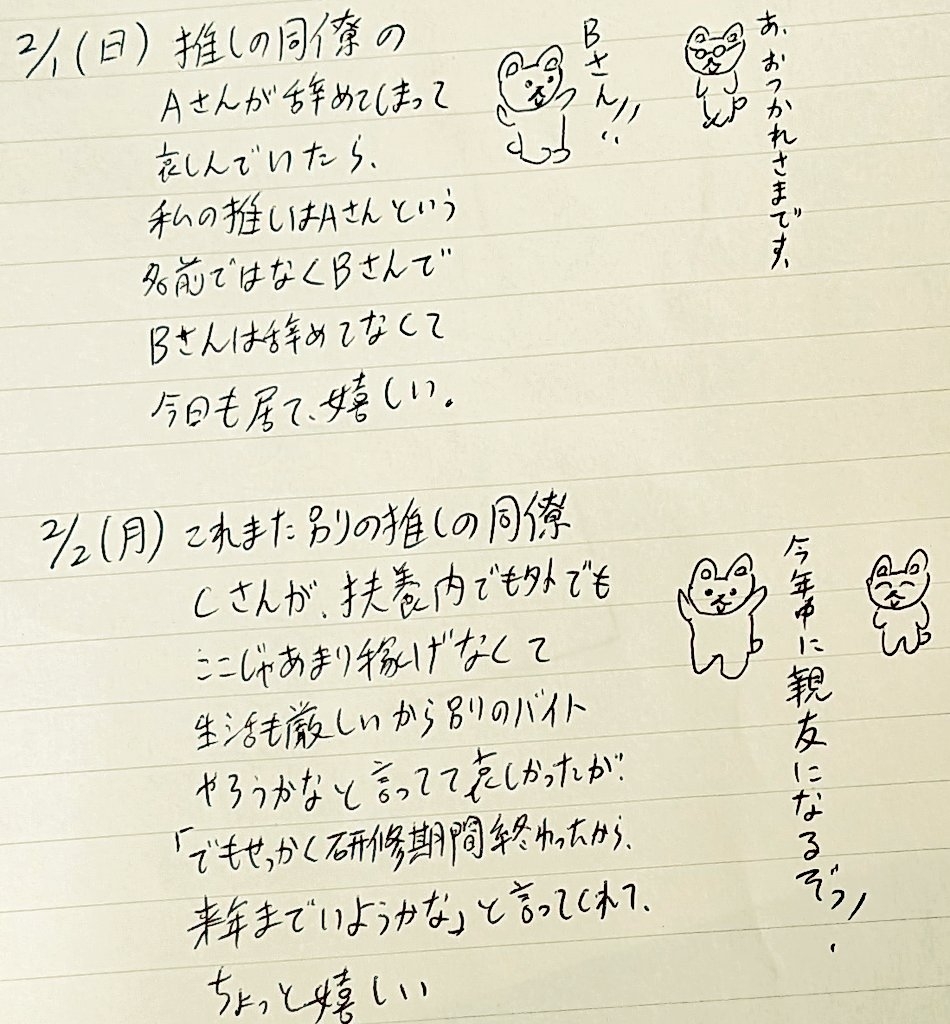 2/1(日) 推しの同僚の
Aさんが辞めてしまって
哀しんでいたら、
私の推しはAさんという
名前ではなくBさんで
Bさんは辞めてなくて
今日も居て、嬉しい。
Bさん!!
あ、おつかれさまです、
2/2(月) これまた別の推しの同僚
Cさんが、扶養内でも外でも
ここじゃあまり稼げなくて
生活も厳しいから別のバイト
やろうかなと言ってて哀しかったが、
「でもせっかく研修期間終わったから、
来年までいようかな」と言ってくれて、
ちょっと嬉しい
今年中に親友になるぞっ!